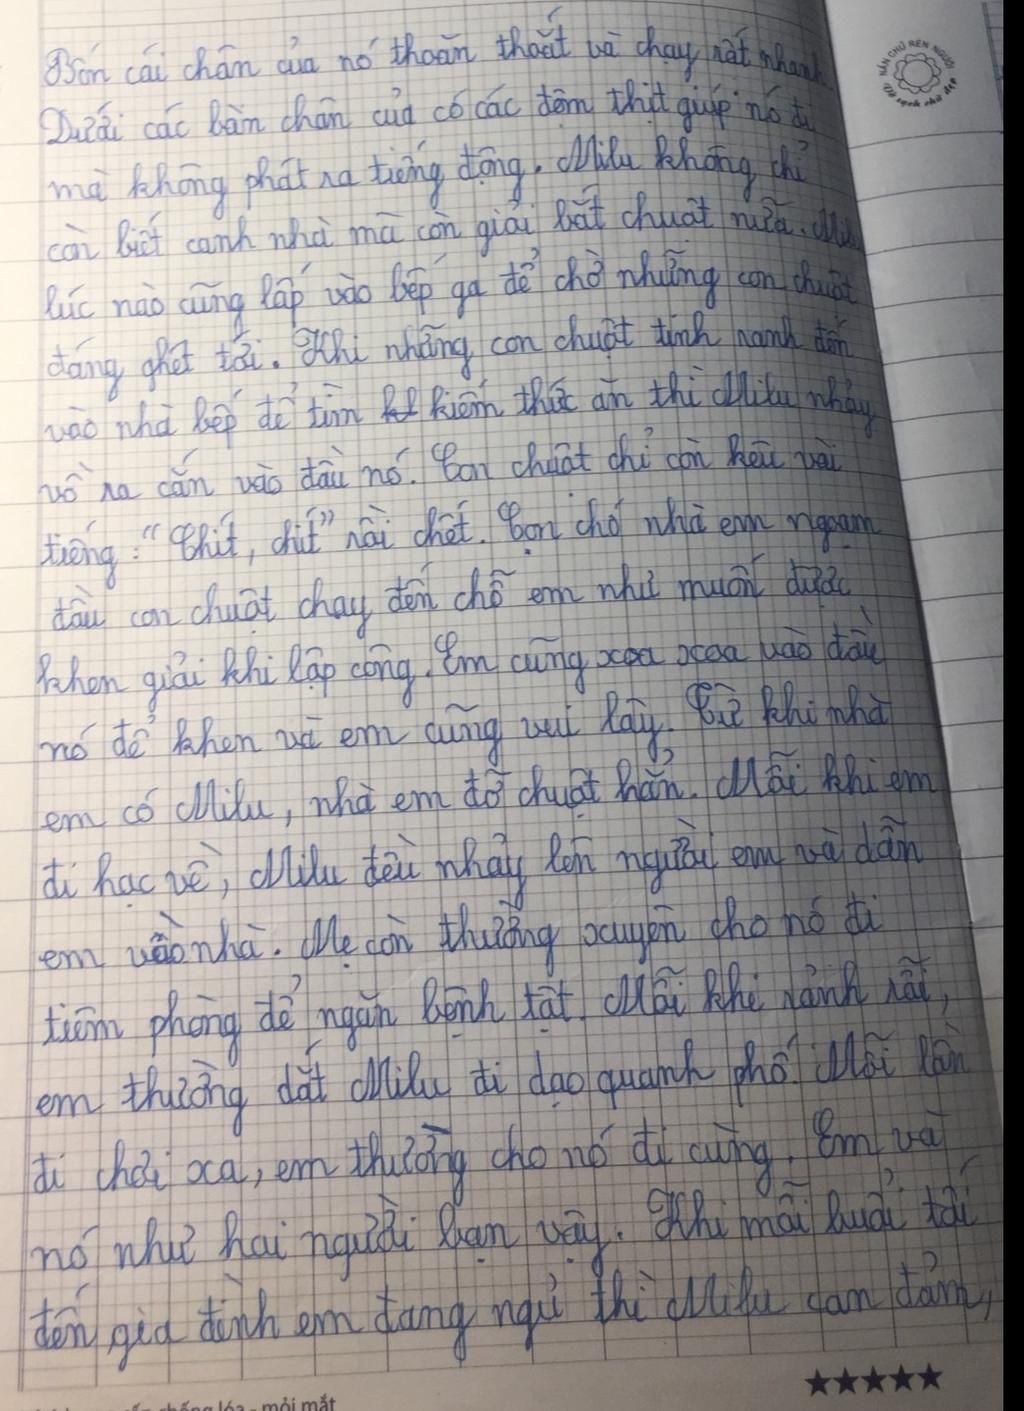 Bốn cái chân của nó thoăn thoắt và chạy rất nhanh
Dưới các bàn chân của có các đệm thịt giúp nó đi
mà không phát ra tiếng động. Milu không chỉ
còn biết canh nhà mà còn giỏi bắt chuột nữa. Milu
lúc nào cũng lấp vào bếp ga để chờ những con chuột
đáng ghét tới. Khi những con chuột tinh ranh đến
vào nhà bếp để tìm kiếm thức ăn thì Milu nhảy
vồ ra cắn vào đầu nó. Con chuột chỉ còn kêu vài
tiếng: "Chít, chít" rồi chết. Con chó nhà em ngoạm
đầu con chuột chạy đến chỗ em như muốn được
khen giỏi khi lập công. Em cũng xoa xoa vào đầu
nó để khen và em cũng vui lây. Từ khi nhà
em có Milu, nhà em đỡ chuột hẳn. Mỗi khi em
đi học về, Milu đều nhảy lên người em và dẫn
em vào nhà. Mẹ còn thường xuyên cho nó đi
tiêm phòng để ngăn bệnh tật. Mỗi khi rảnh rỗi,
em thường dắt Milu đi dạo quanh phố. Mỗi lần
đi chơi xa, em thường cho nó đi cùng. Em và
nó như hai người bạn vậy. Khi mỗi buổi tối
đến gia đình em đang ngủ thì Milu can đảm,
NẮN CHỮ RÈN NGƯỜI
Vở sạch chữ đẹp
chống lóa - mỏi mắt